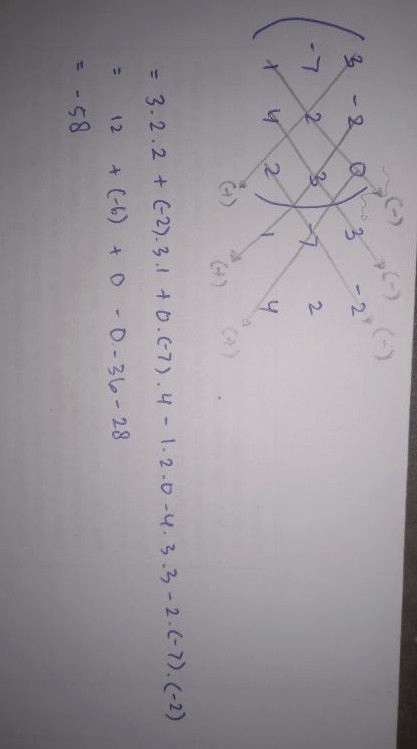 (-) (-) (-)
( 3 -2 0 ) 3 -2
-7 2 3 -7 2
1 4 2 1 4
(+) (+) (+)
= 3.2.2 + (-2).3.1 + 0.(-7).4 - 1.2.0 - 4.3.3 - 2.(-7).(-2)
= 12 + (-6) + 0 - 0.-36-28
= -58